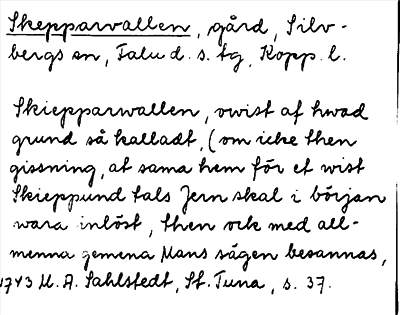 Skepparvallen, gård, Silv-
bergs sn, Falu d. s. tg, Kopp. l.
Skiepparwallen, owist af hwad
grund så kalladt, (om icke then
gissning, at sama hem för et wist
Skieppund tals Jern skal i början
wara inlöst, then ock med all-
menna gemena Mans sägen besannas,
1743 U. A. Sahlstedt, St. Tuna, s. 37.